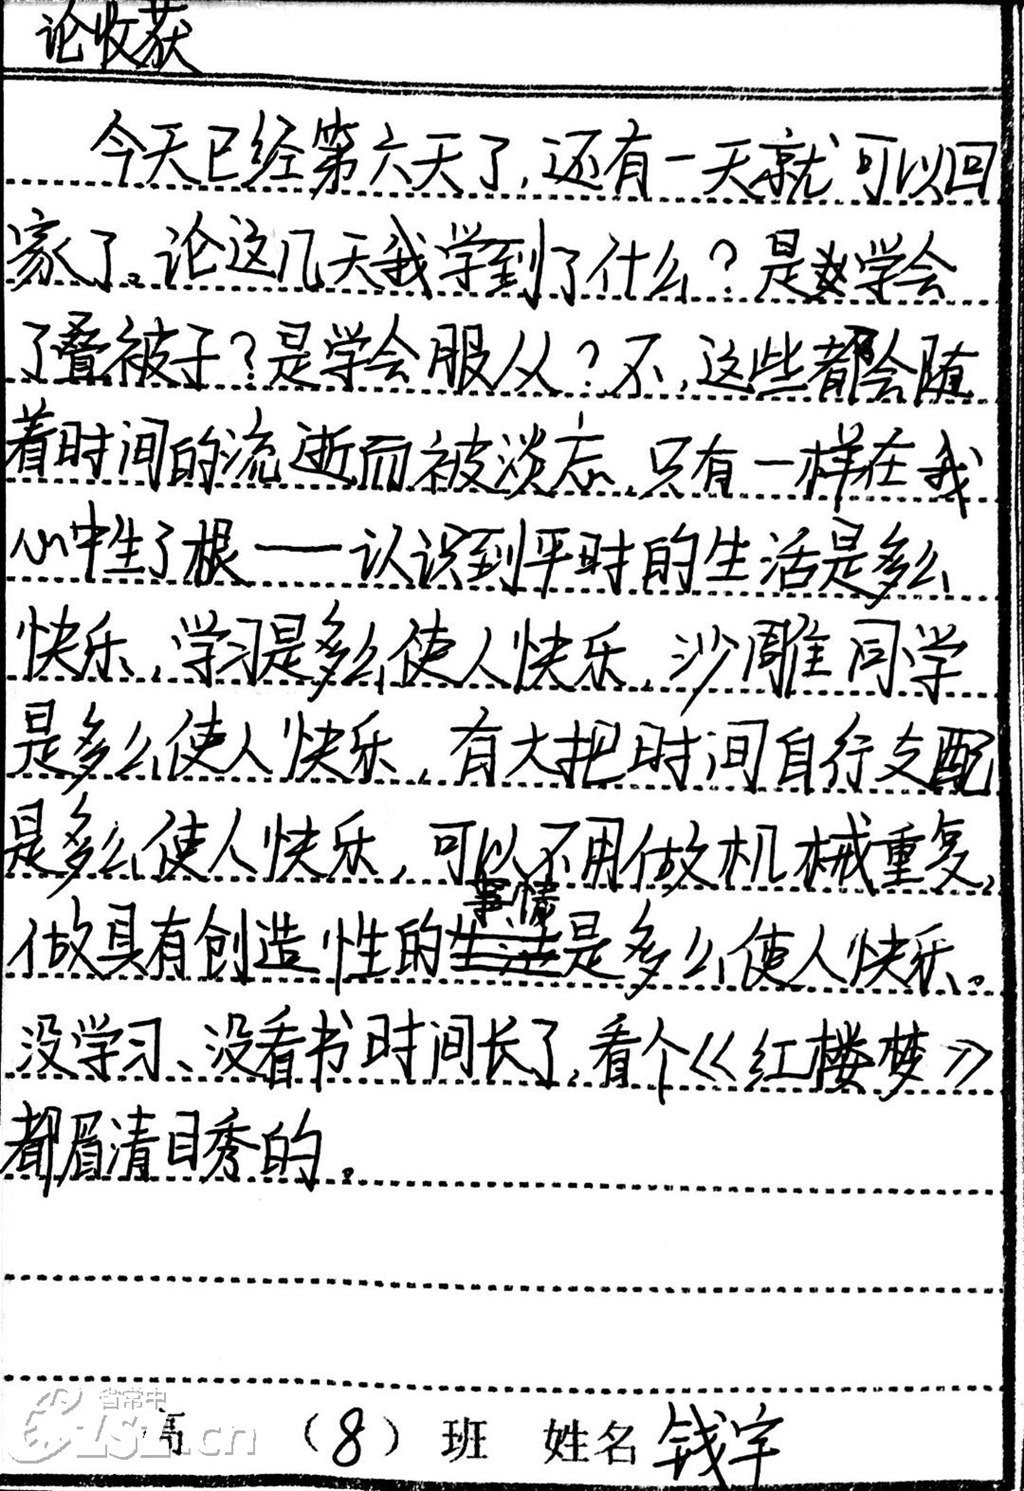 论收获
今天已经第六天了,还有一天就可以回
家了。论这几天我学到了什么?是学会
了叠被子?是学会服从?不,这些都会随
着时间的流逝而被淡忘,只有一样在我
心中生了根——认识到平时的生活是多么
快乐,学习是多么使人快乐,沙雕同学
是多么使人快乐,有大把时间自行支配
是多么使人快乐,可以不用做机械重复,
事情
做具有创造性的生活是多么使人快乐。
没学习、没看书时间长了,看个《红楼梦》
都眉清目秀的。
省常中
高 (8)班 姓名 钱宇